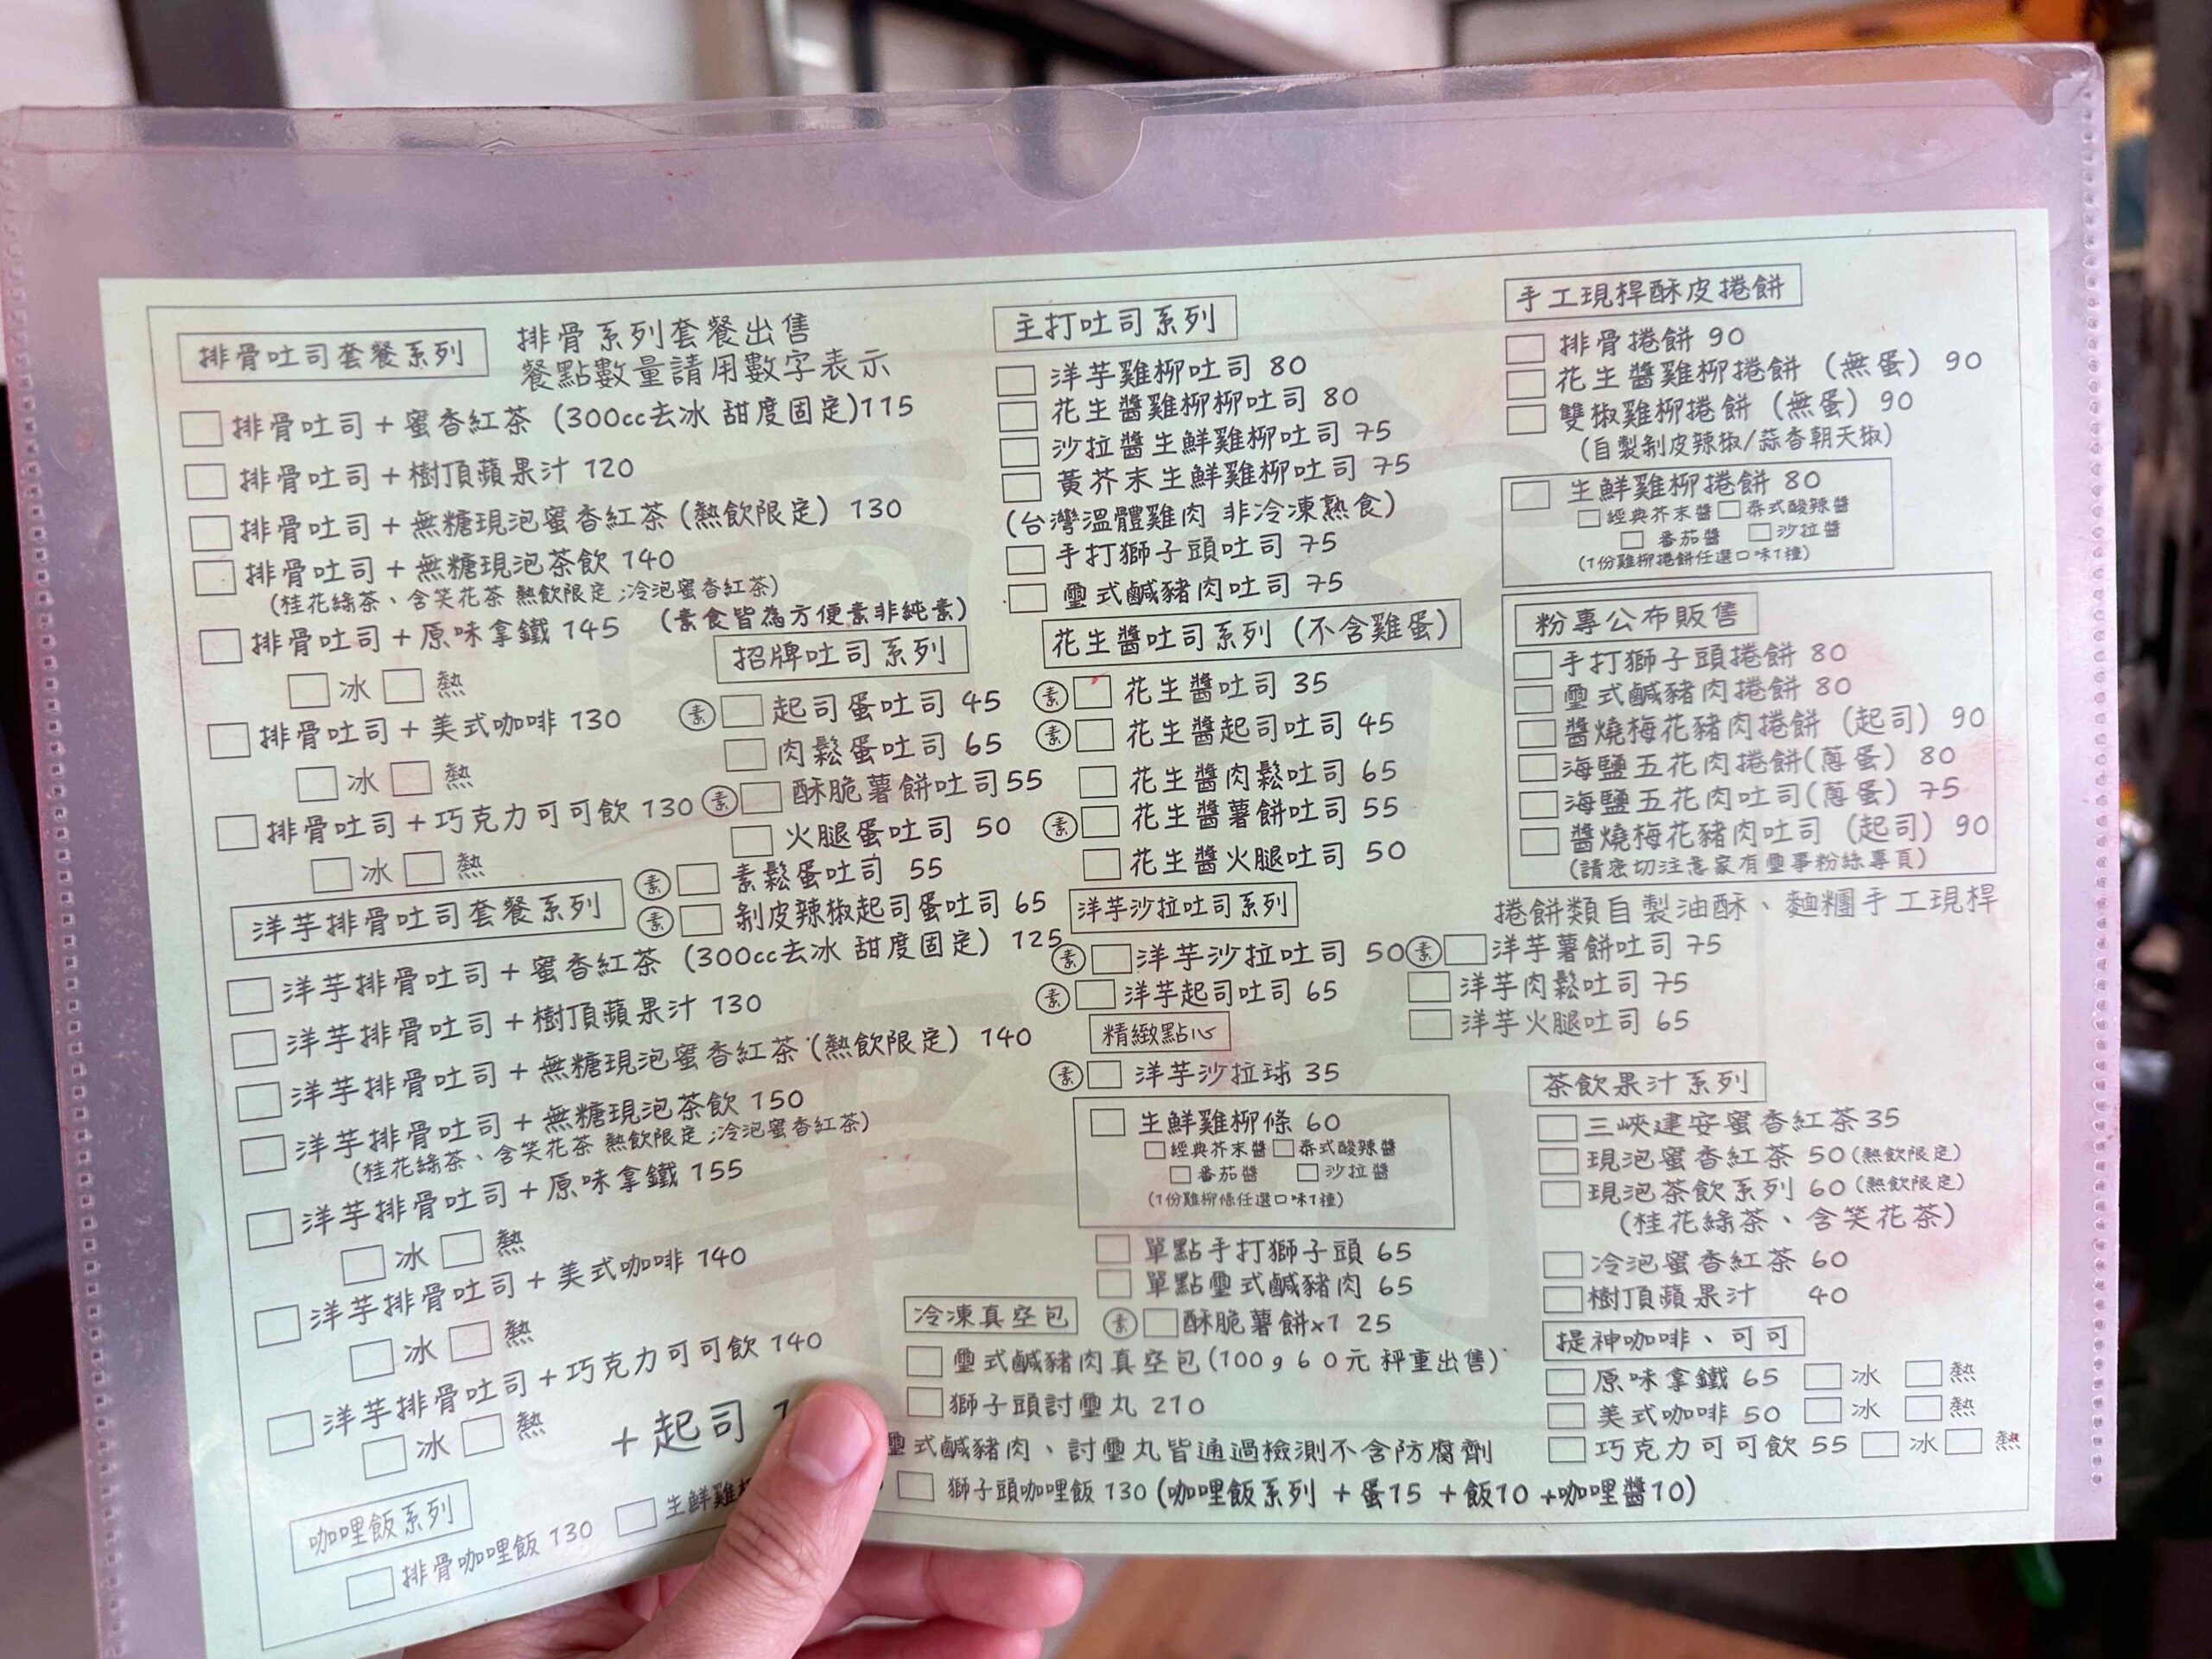 排骨吐司套餐系列
排骨系列套餐出售
餐點數量請用數字表示
排骨吐司+蜜香紅茶 (300cc去冰 甜度固定)115
排骨吐司+樹頂蘋果汁 120
排骨吐司+無糖現泡蜜香紅茶(熱飲限定) 130
排骨吐司+無糖現泡茶飲 140
(桂花綠茶、含笑花茶 熱飲限定;冷泡蜜香紅茶)
排骨吐司+原味拿鐵 145
冰 熱
排骨吐司+美式咖啡 130
冰 熱
排骨吐司+巧克力可可飲 130
冰 熱
(素食皆為方便素非純素)
招牌吐司系列
素 起司蛋吐司 45
肉鬆蛋吐司 65
素 酥脆薯餅吐司55
火腿蛋吐司 50
素 素鬆蛋吐司 55
素 剝皮辣椒起司蛋吐司 65
洋芋排骨吐司套餐系列
洋芋排骨吐司+蜜香紅茶 (300cc去冰 甜度固定) 125
洋芋排骨吐司+樹頂蘋果汁 130
洋芋排骨吐司+無糖現泡蜜香紅茶(熱飲限定) 140
洋芋排骨吐司+無糖現泡茶飲 150
(桂花綠茶、含笑花茶 熱飲限定;冷泡蜜香紅茶)
洋芋排骨吐司+原味拿鐵 155
冰 熱
洋芋排骨吐司+美式咖啡 140
冰 熱
洋芋排骨吐司+巧克力可可飲 140
冰 熱
+起司
咖哩飯系列
排骨咖哩飯 130
生鮮雞
獅子頭咖哩飯 130 (咖哩飯系列 +蛋15 +飯10 +咖哩醬10)
主打吐司系列
洋芋雞柳吐司 80
花生醬雞柳柳吐司 80
沙拉醬生鮮雞柳吐司 75
黃芥末生鮮雞柳吐司 75
(台灣溫體雞肉 非冷凍熟食)
手打獅子頭吐司 75
璽式鹹豬肉吐司 75
花生醬吐司系列 (不含雞蛋)
素 花生醬吐司 35
素 花生醬起司吐司 45
花生醬肉鬆吐司 65
素 花生醬薯餅吐司 55
花生醬火腿吐司 50
洋芋沙拉吐司系列
素 洋芋沙拉吐司 50
素 洋芋起司吐司 65
素 洋芋薯餅吐司 75
洋芋肉鬆吐司 75
洋芋火腿吐司 65
精緻點心
素 洋芋沙拉球 35
生鮮雞柳條 60
經典芥末醬 泰式酸辣醬
番茄醬 沙拉醬
(1份雞柳條任選口味1種)
單點手打獅子頭 65
單點璽式鹹豬肉 65
素 酥脆薯餅x1 25
冷凍真空包
璽式鹹豬肉真空包(100g60元 秤重出售)
獅子頭討璽丸 210
璽式鹹豬肉、討璽丸皆通過檢測不含防腐劑
手工現桿酥皮捲餅
排骨捲餅 90
花生醬雞柳捲餅 (無蛋) 90
雙椒雞柳捲餅 (無蛋) 90
(自製剝皮辣椒/蒜香朝天椒)
生鮮雞柳捲餅 80
經典芥末醬 泰式酸辣醬
番茄醬 沙拉醬
(1份雞柳捲餅任選口味1種)
粉專公布販售
手打獅子頭捲餅 80
璽式鹹豬肉捲餅 80
醬燒梅花豬肉捲餅 (起司) 90
海鹽五花肉捲餅(蔥蛋) 80
海鹽五花肉吐司(蔥蛋) 75
醬燒梅花豬肉吐司 (起司) 90
(請密切注意家有璽事粉絲專頁)
捲餅類自製油酥、麵糰手工現桿
茶飲果汁系列
三峽建安蜜香紅茶35
現泡蜜香紅茶 50(熱飲限定)
現泡茶飲系列 60(熱飲限定)
(桂花綠茶、含笑花茶)
冷泡蜜香紅茶 60
樹頂蘋果汁 40
提神咖啡、可可
原味拿鐵 65 冰 熱
美式咖啡 50 冰 熱
巧克力可可飲 55 冰 熱